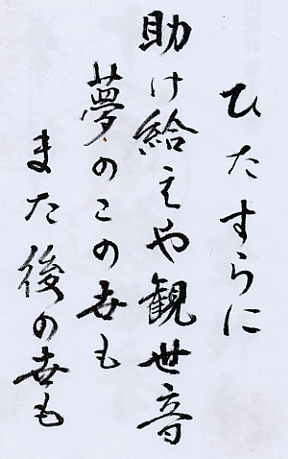 ひたすらに
助け給えや観世音
夢のこの世も
また後の世も